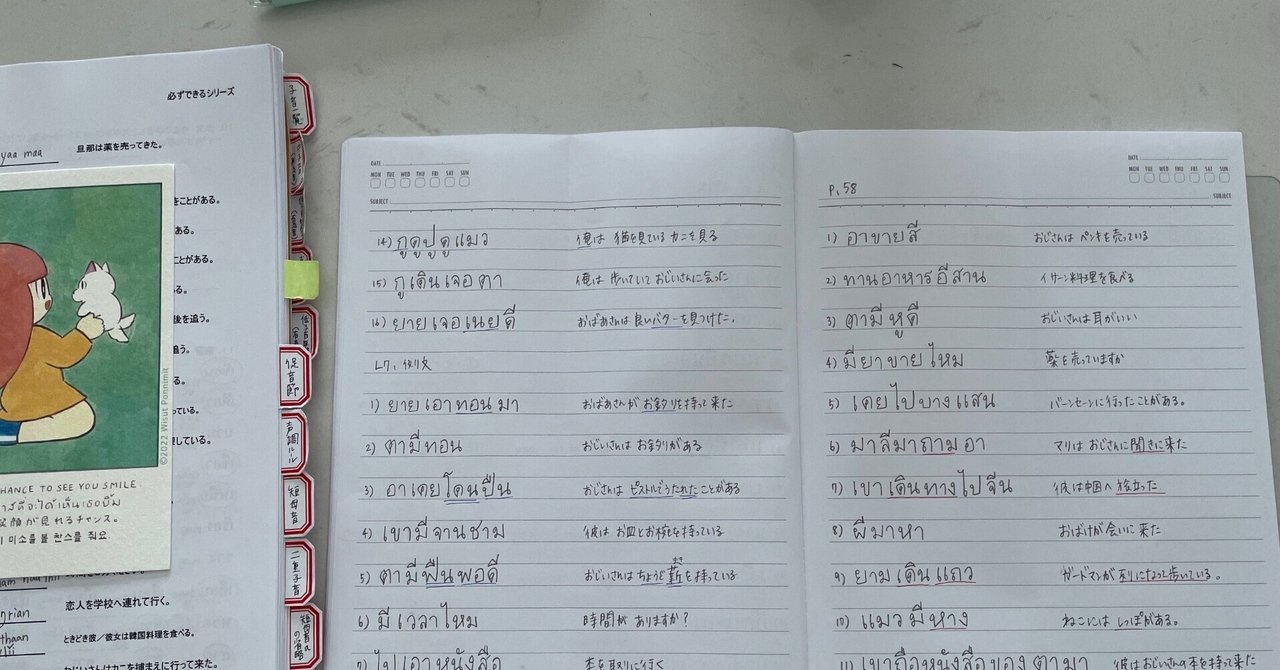 必ずできるシリーズ
yaa maa 旦那は薬を売ってきた。
をことがある。
ある。
ことがある。
る。
後を追う。
追う。
る。
ている。
している。
©2022 Wisut Ponnimit
HANCE TO SEE YOU SMILE.
าสดีจะได้เห็นเธอยิ้ม
笑顔が見れるチャンス。
미소를 볼 찬스를 줘요
恋人を学校へ連れて行く。
ときどき彼/彼女は韓国料理を食べる。
おじいさんはカニを捕まえに行って来た。
子音一覧
促音節
声調ルール
短母音
二重子音
DATE
MON TUE WED THU FRI SAT SUN
SUBJECT
14) กูดูปูดูแมว 俺は 猫を見ている カニを見る
15) กูเดินเจอตา 俺は 歩いていて おじいさんに会った
16) ยายเจอเนยดี おばあさんは 良いバターを見つけた。
L7. 例文
1) ยายเอาทอนมา おばあさんが お釣りを持って来た
2) ตามีทอน おじいさんは お釣りがある
3) อาเคยโดนปืน おじさんは ピストルでうたれたことがある
4) เขามีจานชาม 彼は お皿とお椀を持っている
5) ตามีฟืนพอดี おじいさんは ちょうど薪を持っている
6) มีเวลาไหม 時間が ありますか?
7) ไปเอาหนังสือ 本を取りに行く
DATE
MON TUE WED THU FRI SAT SUN
SUBJECT
P.58
1) อาขายสี おじさんは ペンキを売っている
2) ทานอาหารอีสาน イサーン料理を食べる
3) ตามีหูดี おじいさんは 耳がいい
4) มียาขายไหม 薬を売っていますか
5) เคยไปบางแสน バーンセーンに行ったことがある。
6) มาลีมาถามอา マリは おじさんに聞きに来た
7) เขาเดินทางไปจีน 彼は中国へ 旅立った
8) ผีมาหา おばけが会いに来た
9) ยามเดินแถว ガードマンが 列になって歩いている。
10) แมวมีหาง ねこには しっぽがある。
11) เขาถือหนังสือของตามา 彼はおじいさんの本を持って来た